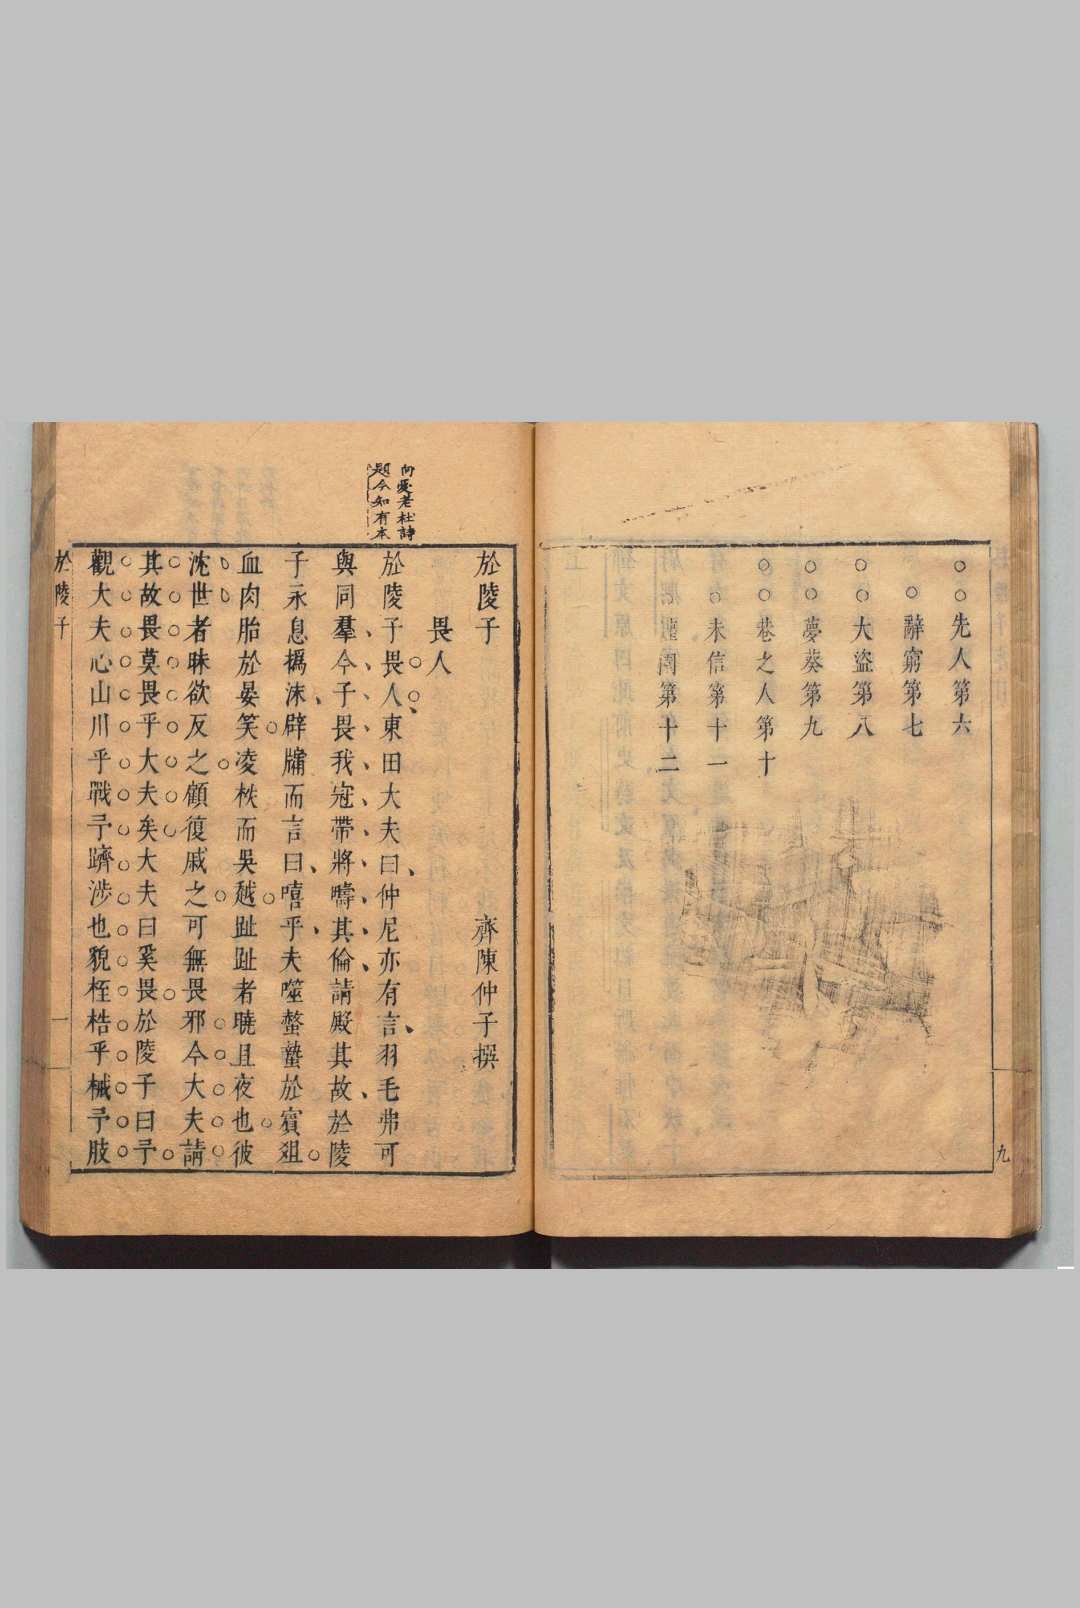 ○○先人第六
○辭窮第七
○○大盜第八
○○夢葵第九
○○巷之人第十
○未信第十一
灌園第十二
九
向憂老杜詩
題今知有本
於陵子
齊陳仲子撰
畏人
於陵子畏人東田大夫曰仲尼亦有言羽毛弗可
與同羣今子畏我冠帶將疇其倫請殿其故於陵
子永息撝沫辟牖而言曰嘻乎夫噬螫蟄於賓爼
血肉胎於晏笑凌枎而吳越趾趾者曉且夜也彼
沈世者昧欲反之顧復戚之可無畏邪今大夫請
其故畏莫畏乎大夫矣大夫曰奚畏於陵子曰予
觀大夫心山川乎戰予躋涉也貌桎梏乎械予肢
於陵子
一